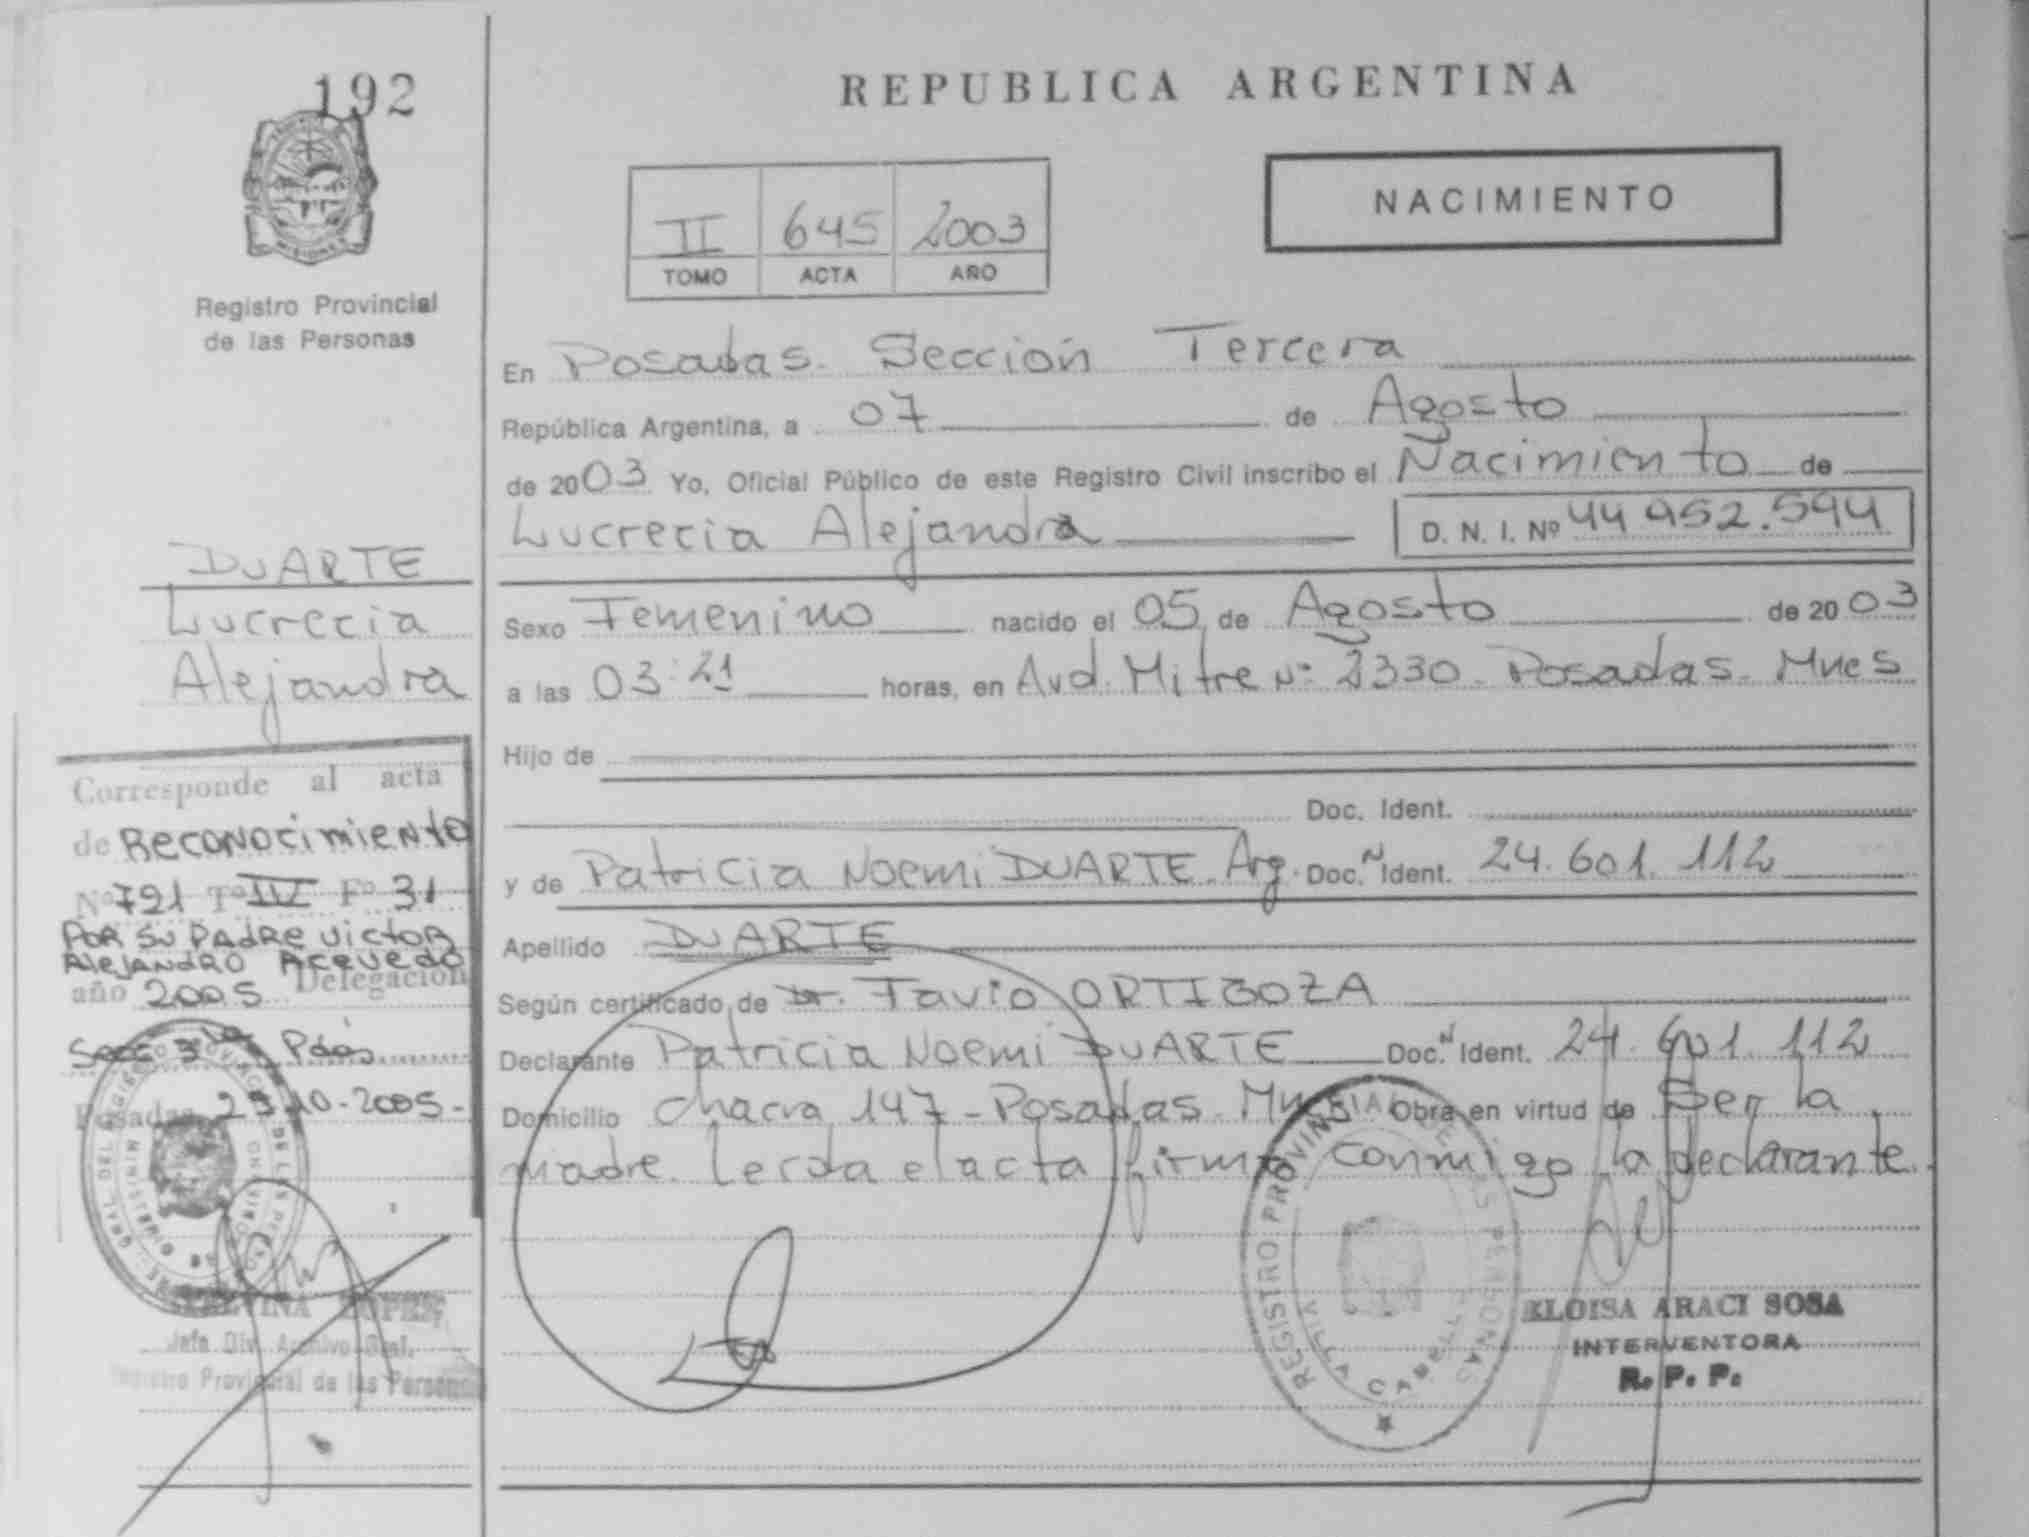 192
MISIONES
Registro Provincial
de las Personas
DUARTE
Lucrecia
Alejandra
Corresponde al acta
de Reconocimiento
Nº 721 Tº IV Fº 31
Por su Padre Victor
Alejandro Acevedo
año 2005 Delegación
Secc 3ra Pdas
Posadas 25-10-2005-
Jefe Div. Archivo Gral.
Registro Provincial de las Personas
REPUBLICA ARGENTINA
NACIMIENTO
II 645 2003
TOMO ACTA AÑO
En Posadas. Sección Tercera
República Argentina, a 07 de Agosto
de 2003 Yo, Oficial Público de este Registro Civil inscribo el Nacimiento de
Lucrecia Alejandra D. N. I. Nº 44 952.594
Sexo Femenino nacido el 05 de Agosto de 2003
a las 03:21 horas, en Avd. Mitre Nº 2330. Posadas. Mnes
Hijo de
Doc. Ident.
y de Patricia Noemi DUARTE. Arg. Doc. N Ident. 24.601.112
Apellido DUARTE
Según certificado de Dr. Favio ORTIGOZA
Declarante Patricia Noemi DUARTE Doc. N Ident. 24.601.112
Domicilio Chacra 147 - Posadas. Mnes Obra en virtud de Ser la
madre. Leida el acta firma conmigo la declarante.
REGISTRO PROVINCIAL DE LAS PERSONAS
VILLA CABELLO
ELOISA ARACI SOSA
INTERVENTORA
R. P. P.